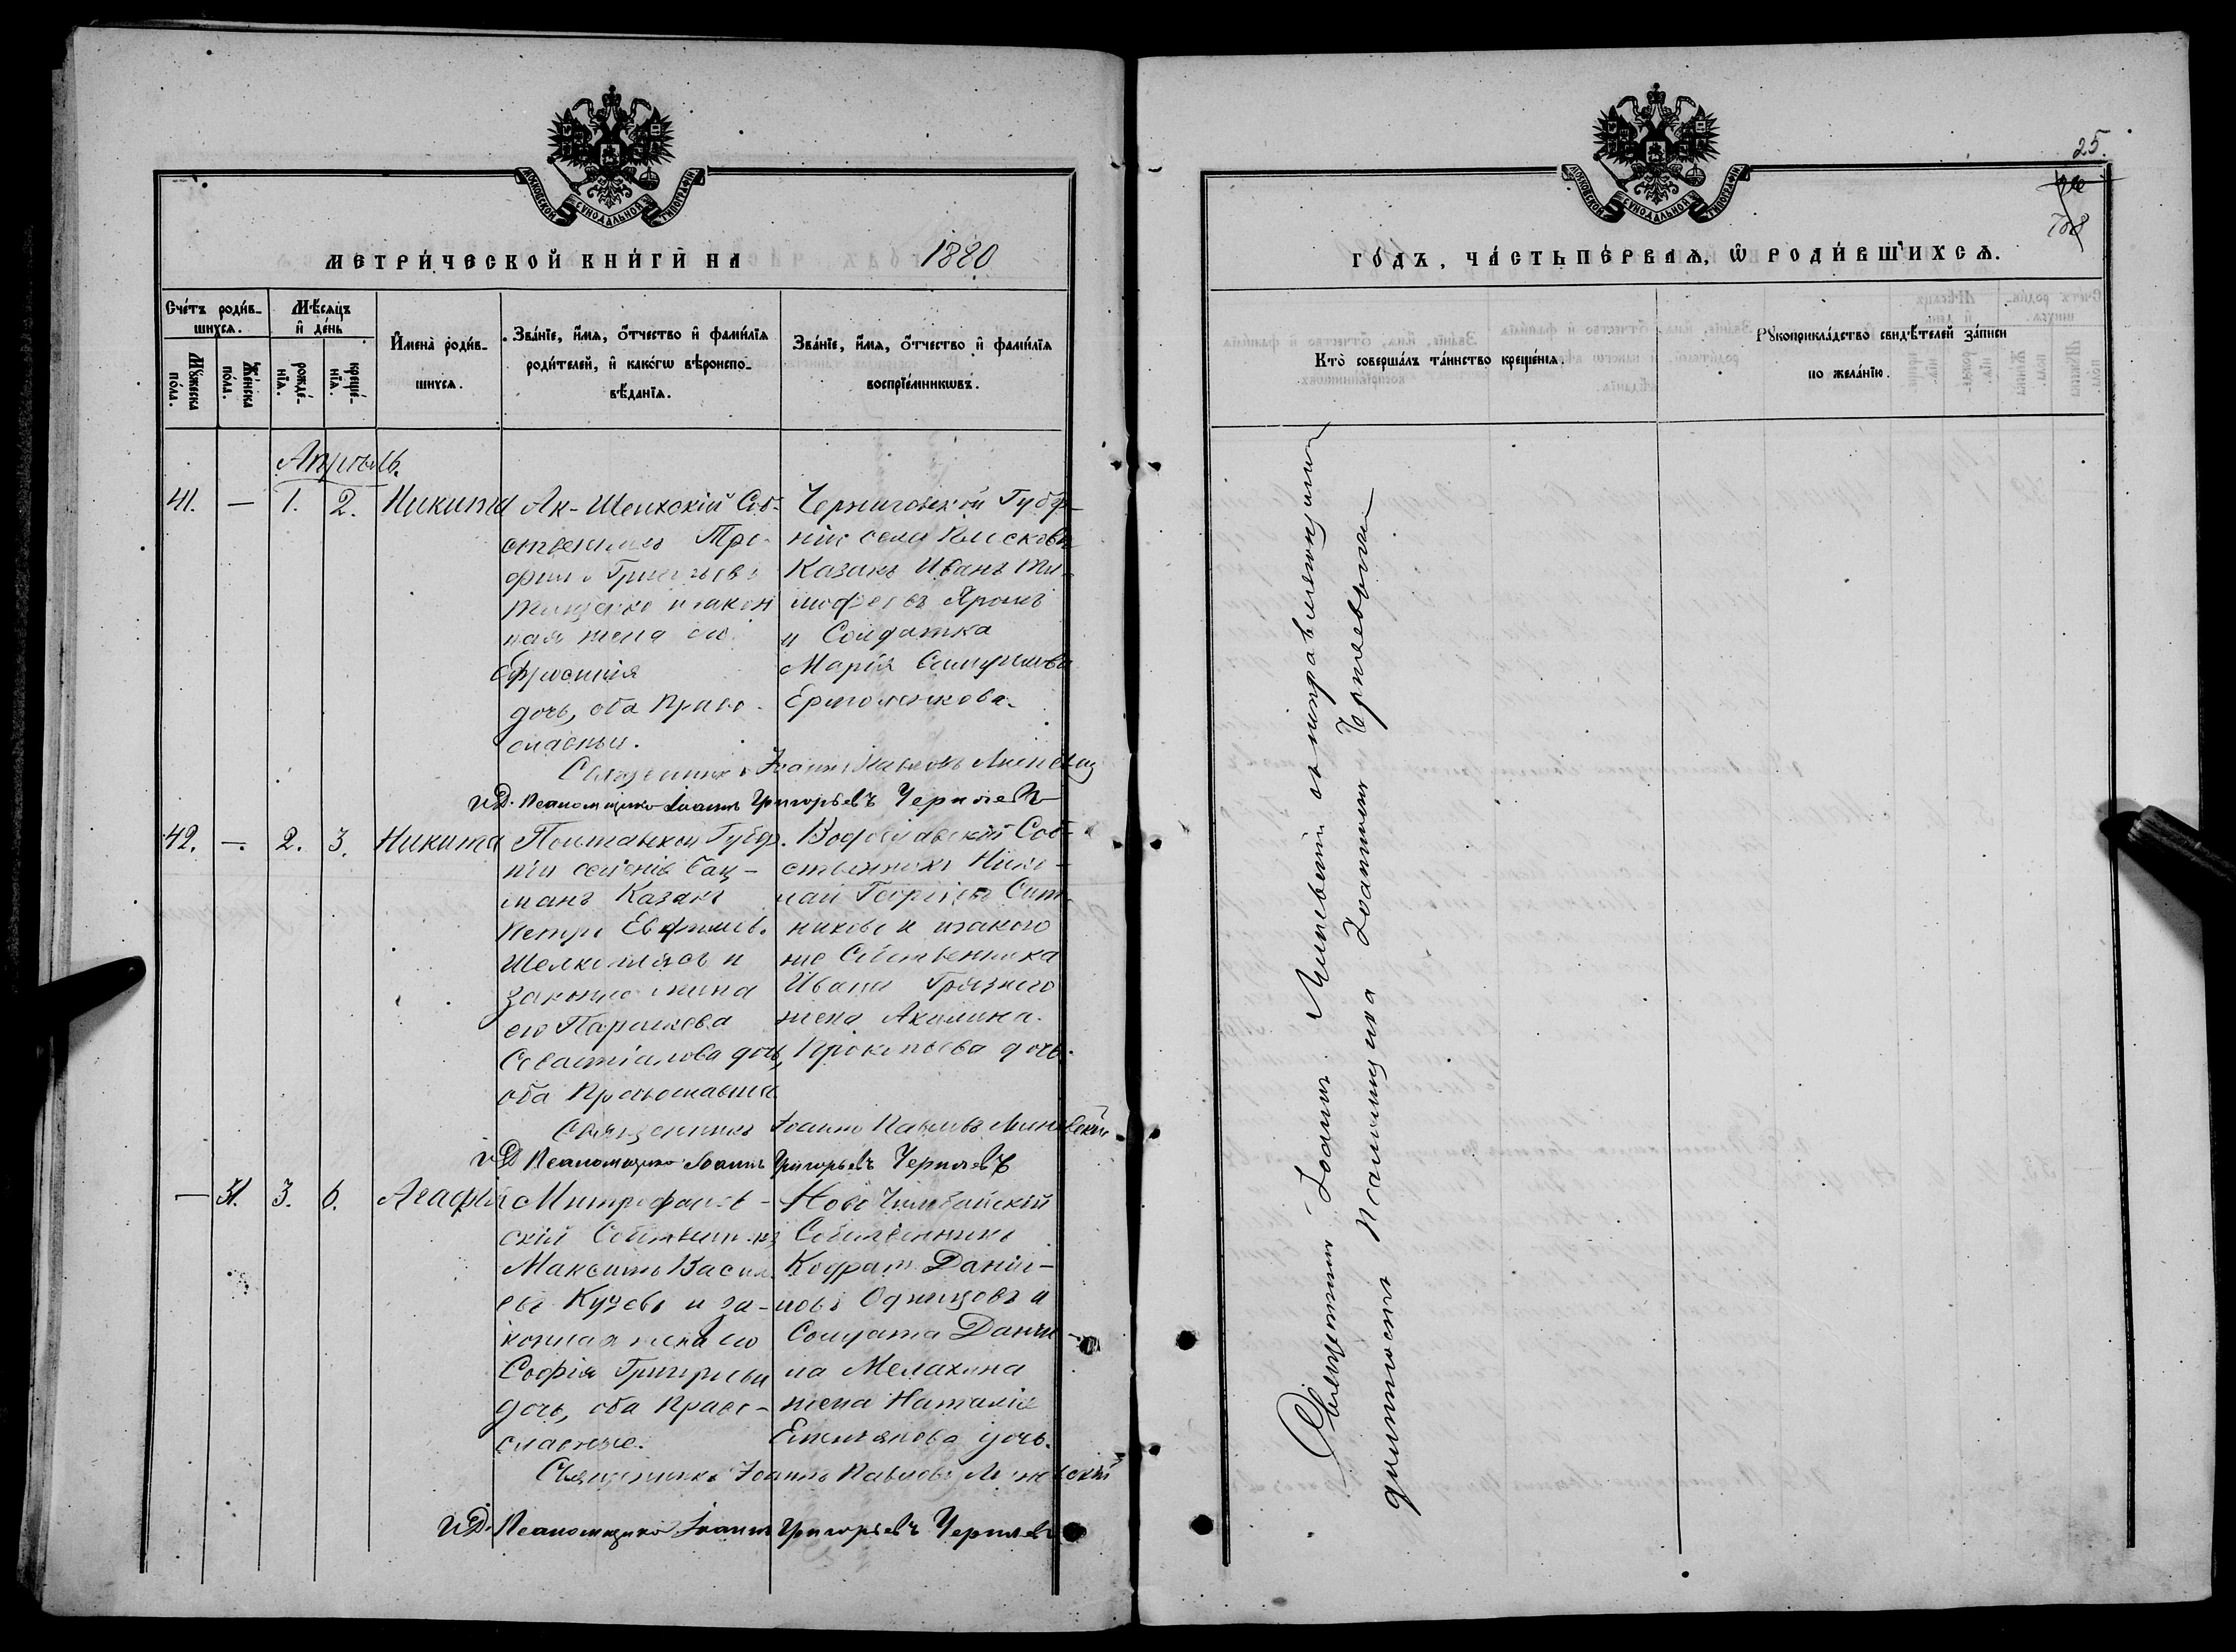 МОСКОВСКОЙ СѴНОДАЛЬНОЙ ТИПОГРАФІИ
МЕТРИ́ЧЕСКОЙ КНИ́ГИ НА 1880
Сче́тъ роди́вшихсѧ.
Мѣ́сѧцъ и҆ де́нь
Мꙋ́жеска по́ла.
Же́нска по́ла.
рожде́нїѧ.
креще́нїѧ.
И҆мена̀ роди́вшихсѧ.
Зва́нїе, и҆́мѧ, ѻ҆́тчество и҆ фамі́лїѧ
роди́телей, и҆ како́гѡ вѣроиспо-
вѣ́данїѧ.
Зва́нїе, и҆́мѧ, ѻ҆́тчество и҆ фамі́лїѧ
воспрїе́мникѡвъ.
Апрѣль.
41. — 1. 2. Никита
Ак-Шеихскій Соб-
ственникъ Тро-
фимъ Григорьевъ
Тищенко и закон
ная жена его
Ефросинія
дочь, оба Право-
славные.
Черниговской Губер-
ніи села
Казакъ Иванъ Ти-
мофеевъ Яроше
и Солдатка
Марія
Ермоленкова.
Священникъ Іоаннъ Павловъ Линевскій
И.Д. Псаломщика Іоаннъ Григорьевъ Чернявъ
42. — 2. 3. Никита
Полтавской Губер.
ніи селенія Бац-
мано Казакъ
Петръ Евфимов.
и
законная жена
его Параскева
Севастіанова дочь,
оба Православные
Водославскій Соб-
ственникъ Нико-
лай Георгіевъ Сит-
никовъ и такого
же Собственника
Ивана Грязнего
жена Акилина
Прокопьева дочь.
Священникъ Іоаннъ Павловъ Линевскій
И.Д. Псаломщика Іоаннъ Григорьевъ Чернявъ
— 31. 3. 6. Агафія
Митрофанов-
скій Собственникъ
Максимъ Васил-
евъ Куцевъ и за-
конная жена его
Софія Григорьева
дочь, оба Право-
славные.
Ново
Собственникъ
Кодратъ Данiи-
ловъ Одинцовъ и
Солдата Данiи-
ла Мелахина
жена Наталія
Емельянова дочь.
Священникъ Іоаннъ Павловъ Линевскій
И.Д. Псаломщика Іоаннъ Григорьевъ Чернявъ
25.
МОСКОВСКОЙ СѴНОДАЛЬНОЙ ТИПОГРАФІИ
ГО́ДЪ, ЧА́СТЬ ПЕ́РВАѦ, Ѽ РОДИ́ВШИХСѦ.
Кто̀ соверша́лъ та́инство креще́нїѧ.
Рꙋкоприкла́дство свидѣ́телей за́писи
по жела́нїю.
Священникъ Іоаннъ Линевскій съ исправляющимъ
должность Псаломщика Іоанномъ